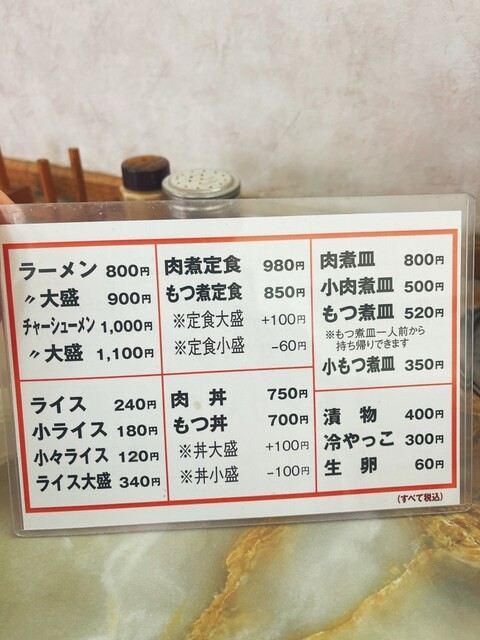 ラーメン 800円
〃大盛 900円
チャーシューメン 1,000円
〃大盛 1,100円
ライス 240円
小ライス 180円
小々ライス 120円
ライス大盛 340円
肉煮定食 980円
もつ煮定食 850円
※定食大盛 +100円
※定食小盛 -60円
肉 丼 750円
もつ丼 700円
※丼大盛 +100円
※丼小盛 -100円
肉煮皿 800円
小肉煮皿 500円
もつ煮皿 520円
※もつ煮皿一人前から
持ち帰りできます
小もつ煮皿 350円
漬 物 400円
冷やっこ 300円
生 卵 60円
(すべて税込)